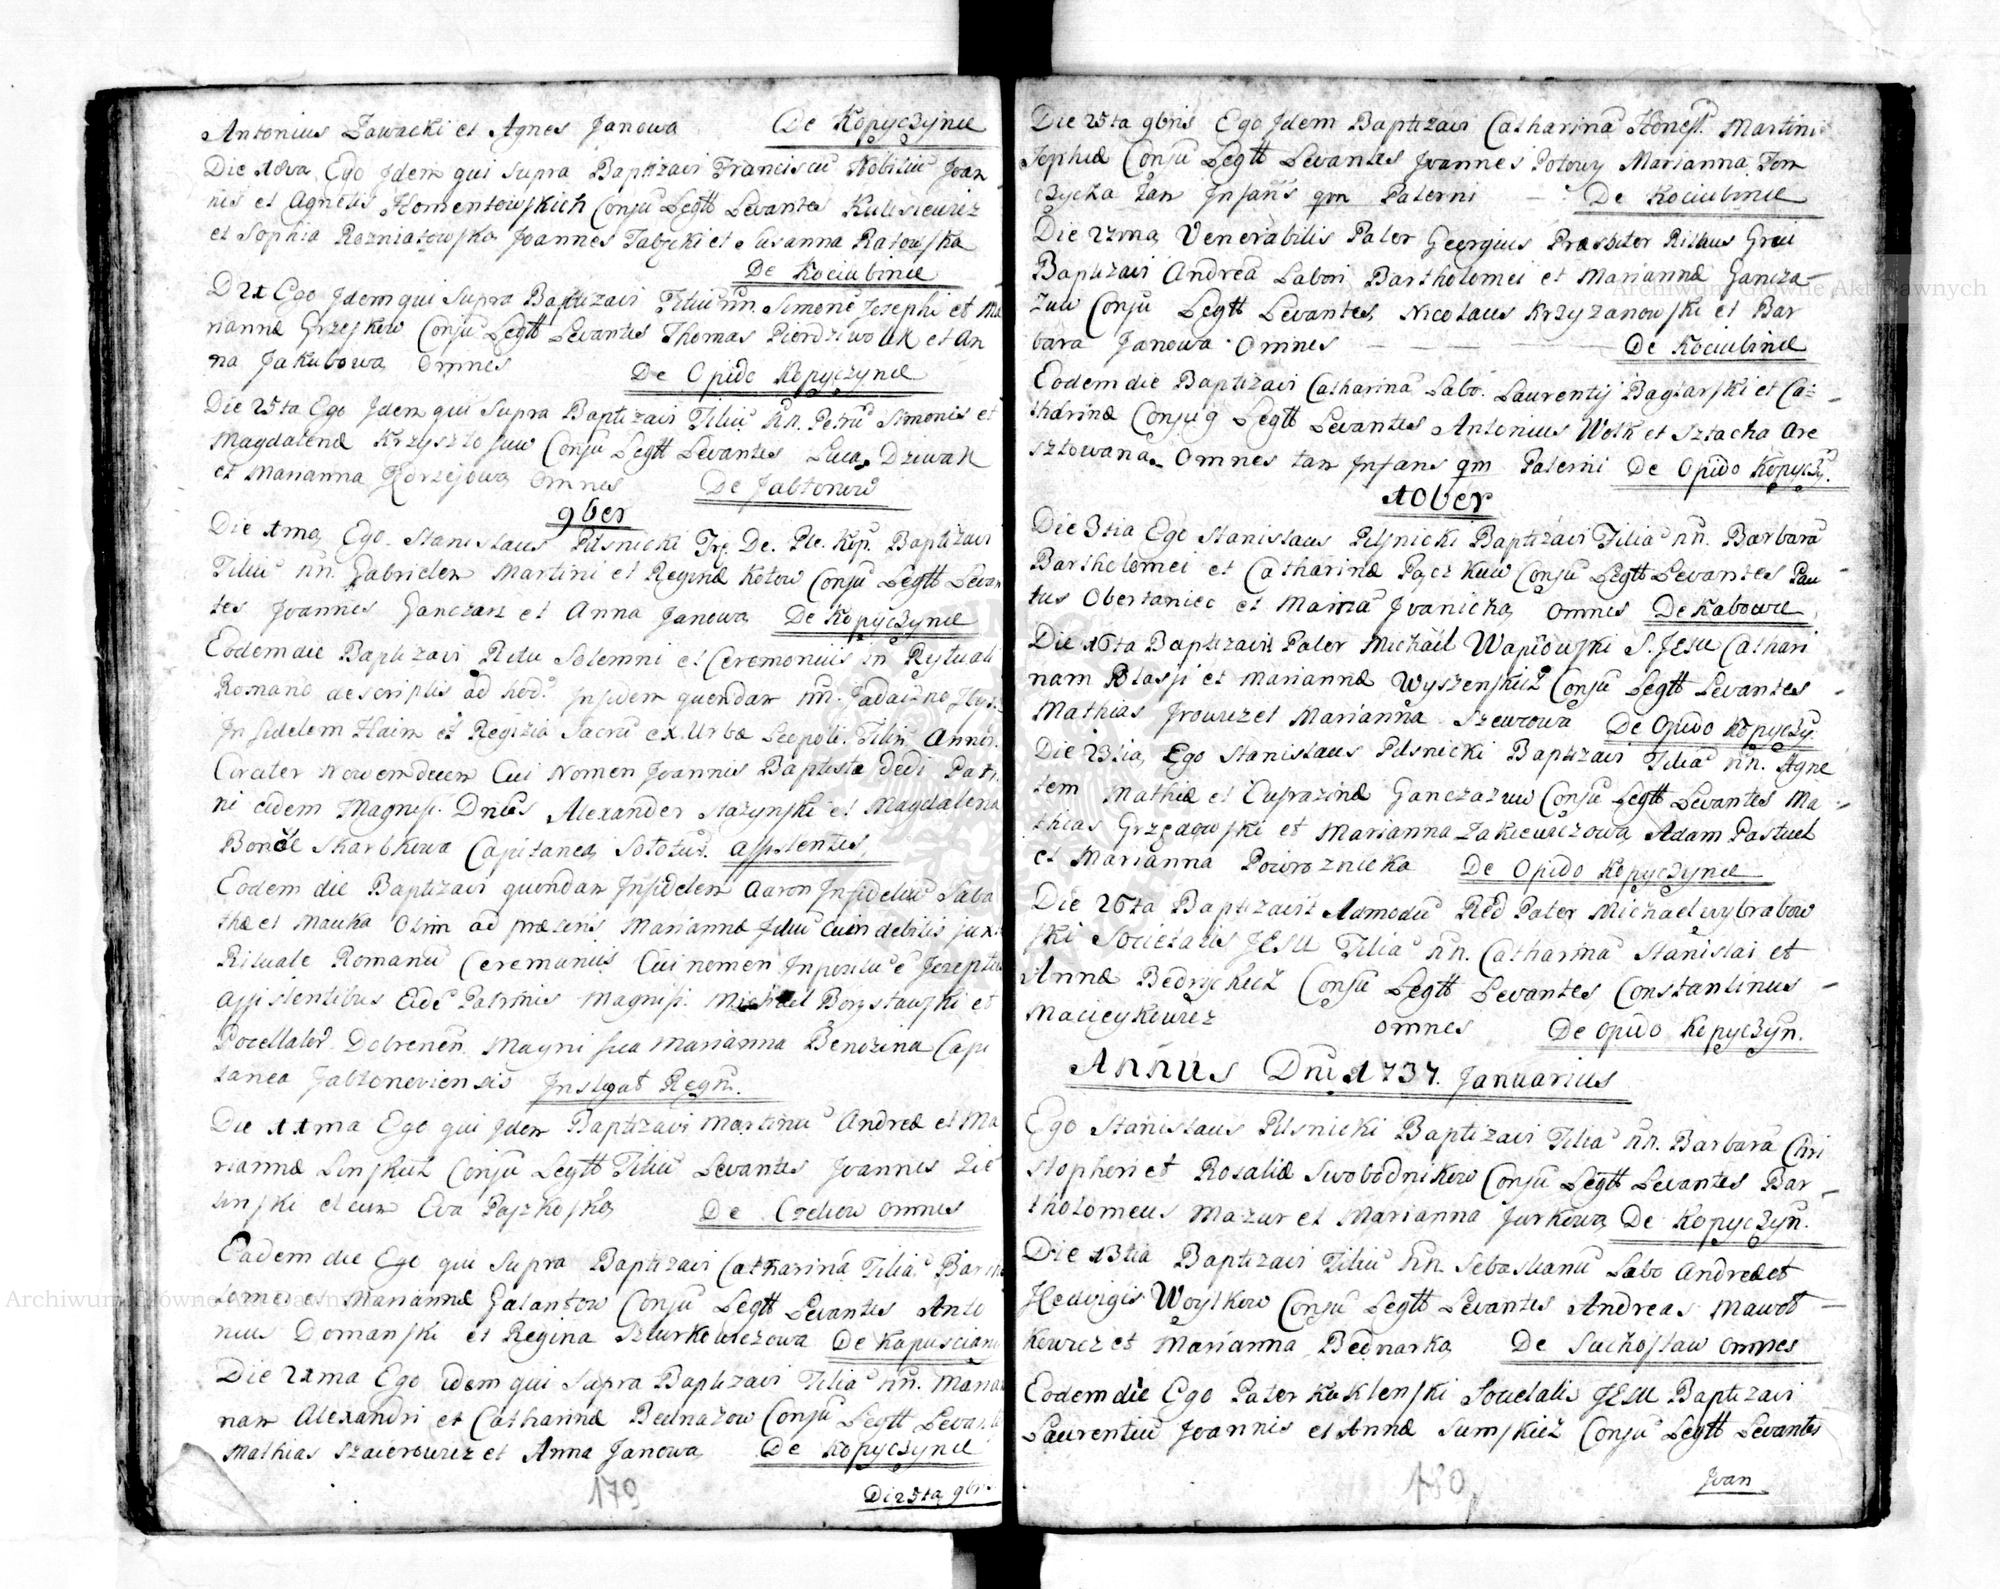 Antonius Zawacki et Agnes Janowa De Kopyczynie
Die 18va Ego Idem qui Supra Baptizavi Franciscū Nobiliū Joan
nis et Agnetis Homentowskich Conjū Legtt Levantes Kulesiewicz
et Sophia Rozniatowska Joannes Tabycki et Susanna Ratowska
De Kociubince
D 21 Ego Idem qui Supra Baptizavi Filiū nn. Simonē Josephi et Ma
riannæ Grzeskow Conjū Legtt Levantes Thomas Pierdziwolk et An
na Jakubowa omnes De Opido Kopyczynce
Die 25ta Ego Idem qui Supra Baptizavi Filiū nn. Petrū Simonis et
Magdalenæ Krzysztofow Conjū Legtt Levantes Lucas Dziwak
et Marianna Korzejowa omnes De Jabłonow
9ber
Die 1ma Ego Stanislaus Pilsnicki Prę. De. Ple. Kop. Baptizavi
Filiū nn. Gabrielem Martini et Reginæ Kotow Conjū Legtt Levan
tes Joannes Ganczarz et Anna Janowa De Kopyczynie
Eodem die Baptizavi Ritu Solemni et Ceremoniis in Rytuali
Romano descriptis ad hoc Infidem quendam nn.
Infidelem Haim et Regizia Sacrū ex Urbe Leopoli. Filiū Annis
Circiter Novemdecem Cui Nomen Joannis Baptista dedi Patri
ni eidem Magnifi. Dnūs Alexander Stazynski et Magdalena
Skarbkowa Capitanea assistentes
Eodem die Baptizavi quendam Infidelem Aaron Infideliū Saba
thæ et Mauka Olim ad præsens Mariannæ Filiū Cum debitis juxt
Rituale Romanū Ceremoniis Cui nomen Inpositū ē Josephus
assistentibus Eidē Patrinis Magnifi. Michael Borystawski et
Pocellator Dobrenen. Magnifica Marianna Benozina Capi
tanea Jabłonoviensis Instigat Regni.
Die 11ma Ego qui Idem Baptizavi Martinū Andreæ et Ma
riannæ Linskich Conjū Legtt Filiū Levantes Joannes Zie
linski et cum Eva Paszkoska De Czehow omnes
Eadem die Ego qui Supra Baptizavi Catharinā Filiā Barto
lomei et Mariannæ Galantow Conjū Legtt Levantes Anto
nius Domanski et Regina Szturkowiczowa De Kopuscian
Die 21ma Ego idem qui Supra Baptizavi Filiā nn. Maria
nam Alexandri et Catharinæ Bednazow Conjū Legtt Levante
Mathias Szaierowicz et Anna Janowa De Kopyczynie
179 Die 25ta 9br
Die 25ta 9bris Ego Idem Baptizavi Catharinā Honest. Martini
Sophiæ Conjū Legtt Levantes Joannes Potowy Marianna Tom
czycha Tan Infans qm Paterni De Kociubince
Die 22ma Venerabilis Pater Georgius Præsbiter Rithus Greci
Baptizavi Andreā Labori Bartholomei et Mariannæ Gancza-
zow Conjū Legtt Levantes, Nicolaus Krzyzanowski et Bar
bara Janowa Omnes De Kociubince
Eodem die Baptizavi Catharinā Labo. Laurentij Bagtarski et Ca-
tharinæ Conjug Legtt Levantes Antonius Wolk et Sztacha Are
sztowana Omnes tam Infans qm Paterni De Opido Kopyczy.
10ber
Die 3tia Ego Stanislaus Pilsnicki Baptizavi Filiā nn. Barbarā
Bartholomei et Catharinæ Paczkow Conjū Legtt Levantes Pau
lus Obertaniec et Mariā Ivanicka omnes De Kabowce
Die 16ta Baptizavit Pater Michael Wapiowski S. JESU Cathari
nam Blasji et Mariannæ Wyszenskich Conjū Legtt Levantes
Mathias Jrowicz et Marianna Szewcowa De Opido Kopyczy.
Die 23tia Ego Stanislaus Pilsnicki Baptizavi Filiā nn. Agne
tem Mathiæ et Eufrazinæ Ganczazow Conjū Legtt Levantes Ma
thias Grzędowski et Marianna Zakiewiczowa Adam Pastuch
et Marianna Powroznicka De Opido Kopyczynce
Die 26ta Baptizavit Admodū Red Pater Michael Wybrabow
ski Societatis JESU Filiā nn. Catharinā Stanislai et
Annæ Bedryckich Conjū Legtt Levantes Constantinus
Macieykowicz omnes De Opido Kopyczyn.
Annus Dni 1737. Januarius
Ego Stanislaus Pilsnicki Baptizavi Filiā nn. Barbarā Chri
stopheri et Rosaliæ Swobodnikow Conjū Legtt Levantes Bar-
tholomeus Mazur et Marianna Jurkowa De Kopyczyn.
Die 13tia Baptizavi Filiū nn. Sebastianū Labo Andreæ et
Hedvigis Woytkow Conjū Legtt Levantes Andreas Mawot
kowicz et Marianna Bednarka De Suchostaw omnes
Eodem die Ego Pater Kuklenski Societatis JESU Baptizavi
Laurentiū Joannis et Annæ Sumskich Conjū Legtt Levantes
180 Joan
Archiwum Główne Akt Dawnych
Archiwum Główne Akt Dawnych